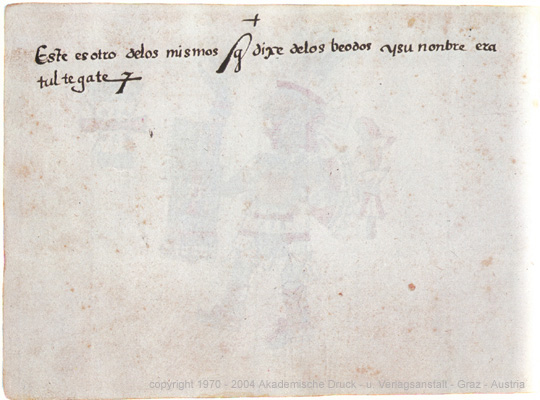 +
Este es otro delos mismos q̃ dixe delos beodos ysu nonbre era
tultegate
copyright 1970 - 2004 Akademische Druck - u. Verlagsanstalt - Graz - Austria